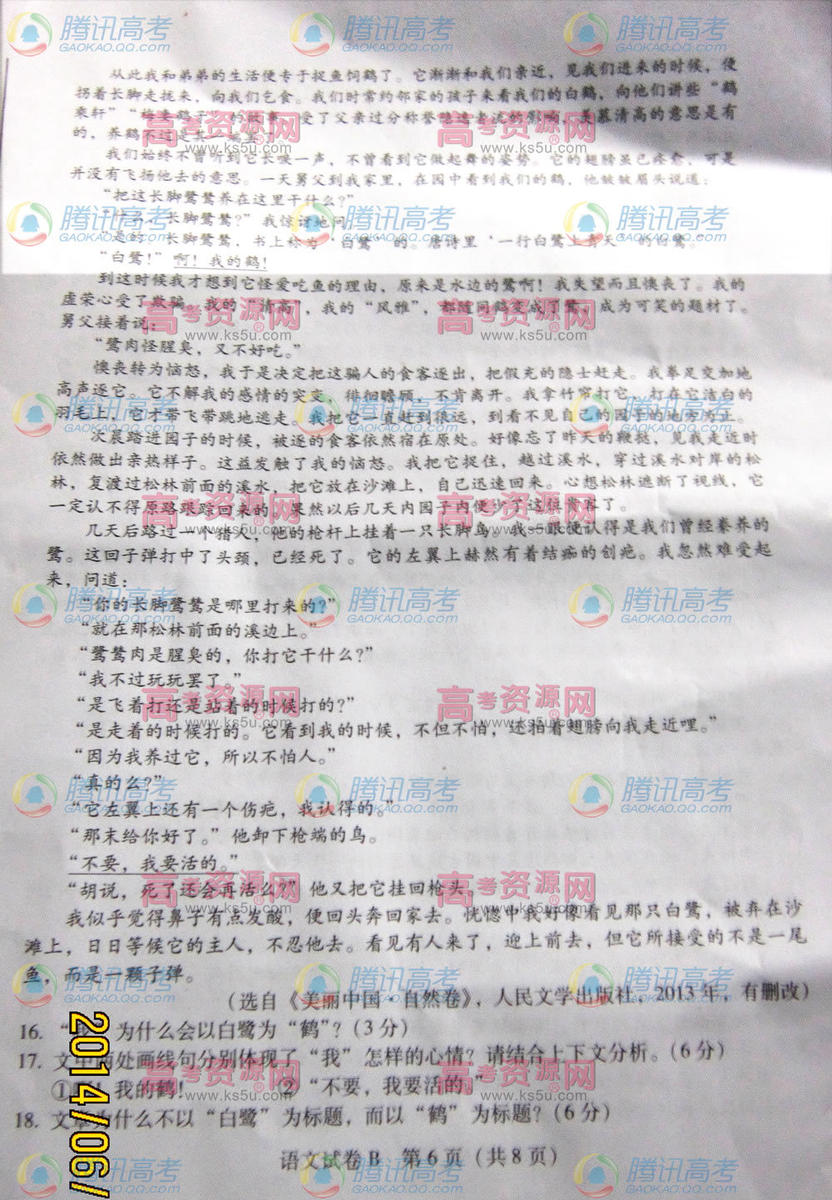 从此我和弟弟的生活便专于捉鱼饲鹤了。它渐渐和我们亲近，见我们进来的时候，便
拐着长脚走拢来，向我们乞食。我们时常约邻家的孩子来看我们的白鹤，向他们讲些“鹤
乘轩”“梅妻鹤子”的故事。受了父亲过分称誉隐逸者流的影响，羡慕清高的意思是有
的，养鹤不过是其一端罢了。
我们始终不曾听到它长唳一声，不曾看到它做起舞的姿势。它的翅膀虽已痊愈，可是
并没有飞扬他去的意思。一天舅父到我家里，在园中看到我们的鹤，他皱皱眉头说道：
“把这长脚鹭鸶养在这里干什么？”
“什么，长脚鹭鸶？”我惊讶地问。
“是的，长脚鹭鸶，书上称为‘白鹭’的。唐诗里‘一行白鹭上青天’的白鹭。”
“白鹭！”啊！我的鹤！
到这时候我才想到它怪爱吃鱼的理由，原来是水边的鹭啊！我失望而且懊丧了。我的
虚荣心受了欺骗。我的“清高”，我的“风雅”，都随同鹤变成了鹭，成为可笑的题材了。
舅父接着说：
“鹭肉怪腥臭，又不好吃。”
懊丧转为恼怒，我于是决定把这骗人的食客逐出，把假充的隐士赶走。我拳足交加地
高声逐它。它不解我的感情的突变，徘徊瞻顾，不肯离开。我拿竹帚打它，打在它洁白的
羽毛上，它才带飞带跳地逃走。我把它一直赶到很远，到看不见自己的园子的地方为止。
次晨踏进园子的时候，被逐的食客依然宿在原处。好像忘了昨天的鞭挞，见我走近时
依然做出亲热样子。这益发触了我的恼怒。我把它捉住，越过溪水，穿过溪水对岸的松
林，复渡过松林前面的溪水，把它放在沙滩上，自己迅速回来。心想松林遮断了视线，它
一定认不得原路跟踪回来的。果然以后几天内园子内便少了这位食客了。
几天后路过一个猎人，他的枪杆上挂着一只长脚鸟。我一眼便认得是我们曾经豢养的
鹭。这回子弹打中了头颈，已经死了。它的左翼上赫然有着结痂的创疤。我忽然难受起
来，问道：
“你的长脚鹭鸶是哪里打来的？”
“就在那松林前面的溪边上。”
“鹭鸶肉是腥臭的，你打它干什么？”
“我不过玩玩罢了。”
“是飞着打还是站着的时候打的？”
“是走着的时候打的。它看到我的时候，不但不怕，还拍着翅膀向我走近哩。”
“因为我养过它，所以不怕人。”
“真的么？”
“它左翼上还有一个伤疤，我认得的。”
“那末给你好了。”他卸下枪端的鸟。
“不要，我要活的。”
“胡说，死了还会再活么？”他又把它挂回枪头。
我似乎觉得鼻子有点发酸，便回头奔回家去。恍惚中我好像看见那只白鹭，被弃在沙
滩上，日日等候它的主人，不忍他去。看见有人来了，迎上前去，但它所接受的不是一尾
鱼，而是一颗子弹。
（选自《美丽中国·自然卷》，人民文学出版社，2013年，有删改）
16. “我”为什么会以白鹭为“鹤”？（3分）
17. 文中两处画线句分别体现了“我”怎样的心情？请结合上下文分析。（6分）
①啊！我的鹤！ ②“不要，我要活的。”
18. 文章为什么不以“白鹭”为标题，而以“鹤”为标题？（6分）
语文试卷B 第6页（共8页）
2014/06/
腾讯高考
GAOKAO.QQ.COM
高考资源网
www.ks5u.com